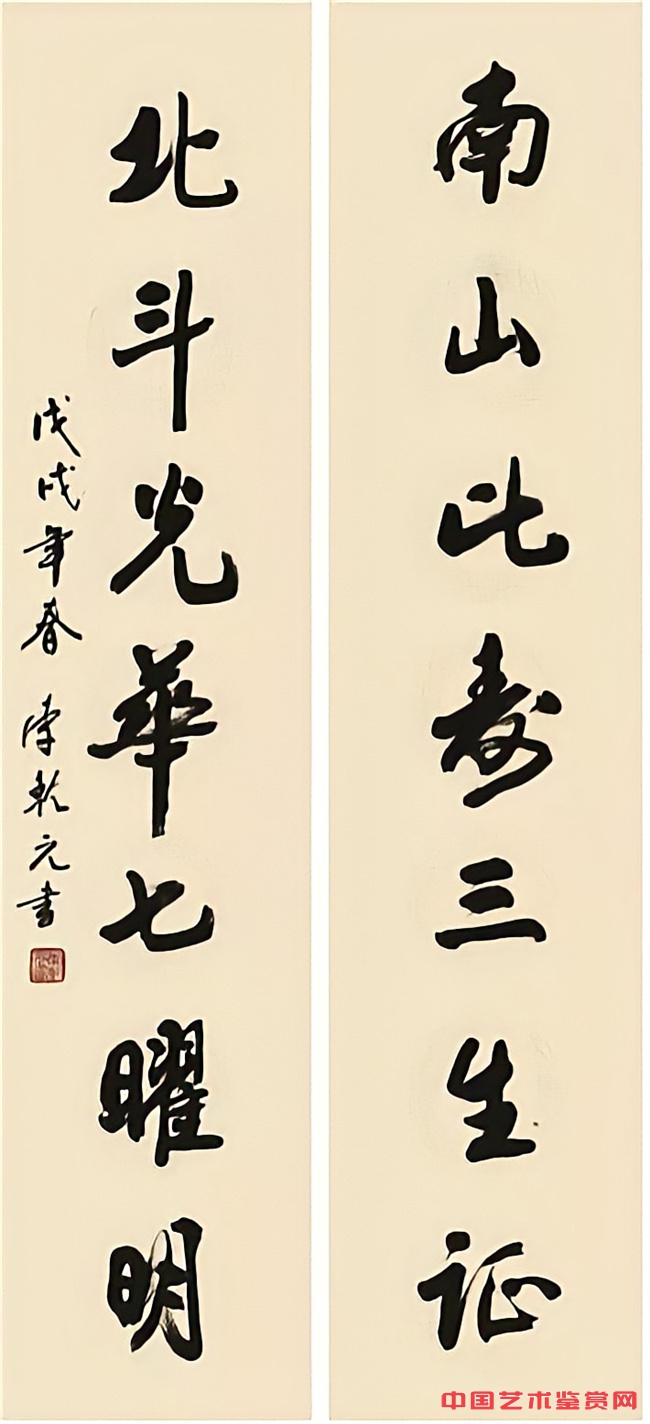 南山比寿三生证
北斗光華七曜明
戊戌年春 李乾元書
中国艺术鉴赏网